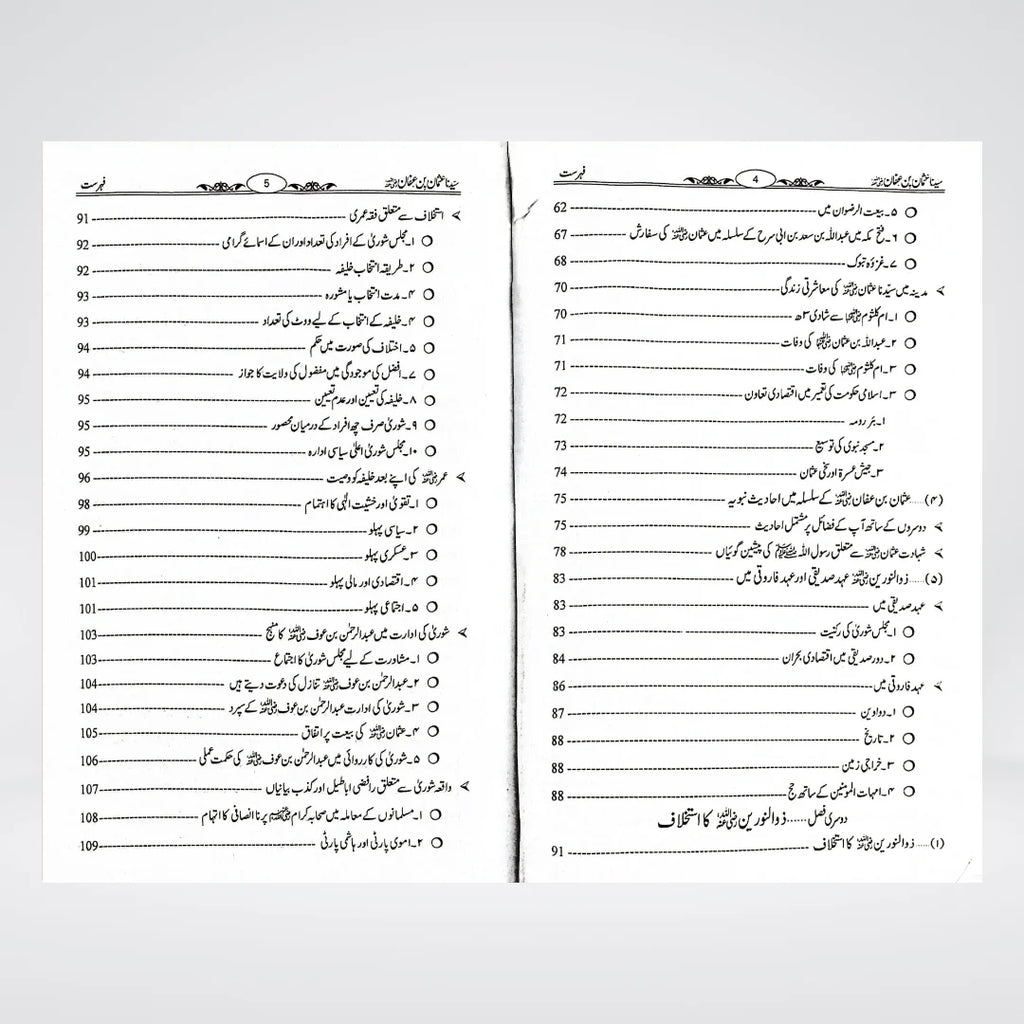 سیدنا عثمان بن عفان رضی اللہ عنہ 4 فہرست
۵۔ بیعت الرضوان میں 62
۶۔ فتح مکہ میں عبداللہ بن سعد بن ابی سرح کے سلسلہ میں عثمان رضی اللہ عنہ کی سفارش 67
۷۔ غزوۂ تبوک 68
مدینہ میں سیّدنا عثمان رضی اللہ عنہ کی معاشرتی زندگی 70
۱۔ ام کلثوم رضی اللہ عنہا سے شادی ۳ھ 70
۲۔ عبداللہ بن عثمان رضی اللہ عنہما کی وفات 71
۳۔ ام کلثوم رضی اللہ عنہا کی وفات 71
۳۔ اسلامی حکومت کی تعمیر میں اقتصادی تعاون 72
۱۔ بئر رومہ 72
۲۔ مسجد نبوی کی توسیع 73
۳۔ جیش عسرۃ اور سخی عثمان 74
(۴)..... عثمان بن عفان رضی اللہ عنہ کے سلسلہ میں احادیث نبویہ 75
دوسروں کے ساتھ آپ کے فضائل پر مشتمل احادیث 75
شہادت عثمان رضی اللہ عنہ سے متعلق رسول اللہ ﷺ کی پیشین گوئیاں 78
(۵)..... ذوالنورین رضی اللہ عنہ عہد صدیقی اور عہد فاروقی میں 83
عہد صدیقی میں 83
۱۔ مجلس شوریٰ کی رکنیت 83
۲۔ دور صدیقی میں اقتصادی بحران 84
عہد فاروقی میں 86
۱۔ دواوین 87
۲۔ تاریخ 88
۳۔ خراجی زمین 88
۴۔ امہات المؤمنین کے ساتھ حج 88
دوسری فصل...... ذوالنورین رضی اللہ عنہ کا استخلاف
(۱)..... ذوالنورین رضی اللہ عنہ کا استخلاف 91
سیّدنا عثمان بن عفان رضی اللہ عنہ 5 فہرست
استخلاف سے متعلق فقہ عمری 91
۱۔ مجلس شوریٰ کے افراد کی تعداد اور ان کے اسمائے گرامی 92
۲۔ طریقہ انتخاب خلیفہ 92
۳۔ مدت انتخاب یا مشورہ 93
۴۔ خلیفہ کے انتخاب کے لیے ووٹ کی تعداد 93
۵۔ اختلاف کی صورت میں حکم 94
۷۔ افضل کی موجودگی میں مفضول کی ولایت کا جواز 94
۸۔ خلیفہ کی تعیین اور عدم تعیین 95
۹۔ شوریٰ صرف چھ افراد کے درمیان محصور 95
۱۰۔ مجلس شوریٰ اعلیٰ سیاسی ادارہ 95
عمر رضی اللہ عنہ کی اپنے بعد خلیفہ کو وصیت 96
۱۔ تقویٰ اور خشیت الٰہی کا اہتمام 98
۲۔ سیاسی پہلو 99
۳۔ عسکری پہلو 100
۴۔ اقتصادی اور مالی پہلو 101
۵۔ اجتماعی پہلو 101
شوریٰ کی ادارت میں عبدالرحمٰن بن عوف رضی اللہ عنہ کا منہج 103
۱۔ مشاورت کے لیے مجلس شوریٰ کا اجتماع 103
۲۔ عبدالرحمٰن بن عوف رضی اللہ عنہ تنازل کی دعوت دیتے ہیں 104
۳۔ شوریٰ کی ادارت عبدالرحمٰن بن عوف رضی اللہ عنہ کے سپرد 104
۴۔ عثمان رضی اللہ عنہ کی بیعت پر اتفاق 105
۵۔ شوریٰ کی کارروائی میں عبدالرحمٰن بن عوف رضی اللہ عنہ کی حکمت عملی 106
واقعہ شوریٰ سے متعلق رافضی اباطیل اور کذب بیانیاں 107
۱۔ مسلمانوں کے معاملہ میں صحابہ کرام رضی اللہ عنہم پر ناانصافی کا اتہام 108
۲۔ اموی پارٹی اور ہاشمی پارٹی 109